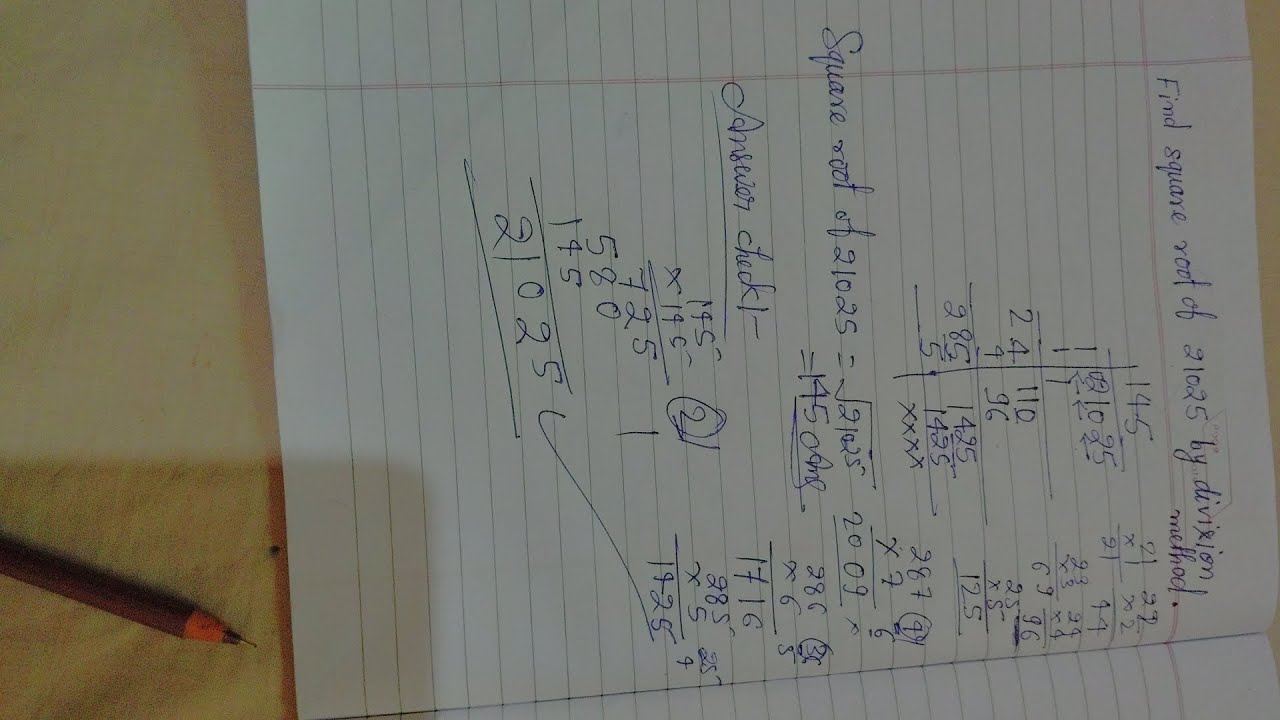 Find square root of 21025 by divixion
method.
145
1 | 21025
1
24 | 110
4 | 96
285 | 1425
5 | 1425
xxxx
21
x1
21
22
x2
44
23
x3
69
24
x4
96
25
x5
125
287
x7
2009
286
x6
1716
285
x5
1425
Square root of 21025 = √21025
= 145 Ans
Answer check:-
145
x145
725
580
145
21025